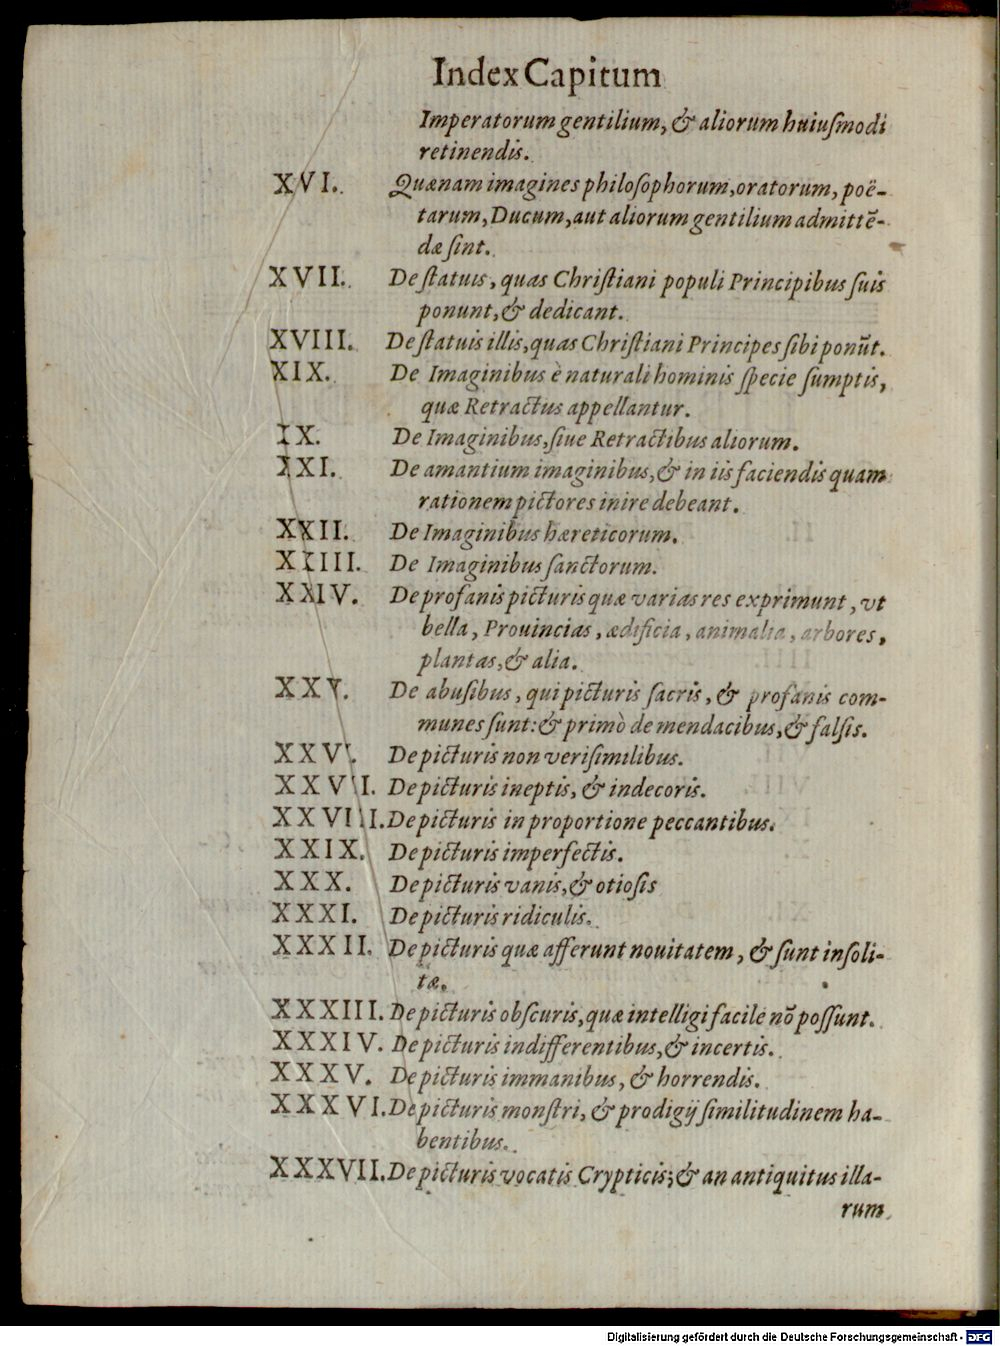 Index Capitum
Imperatorum gentilium, & aliorum huiuſmodi
retinendis.
XVI. Quænam imagines philoſophorum, oratorum, poë-
tarum, Ducum, aut aliorum gentilium admittē-
dæ ſint.
XVII. De ſtatuis, quas Chriſtiani populi Principibus ſuis
ponunt, & dedicant.
XVIII. De ſtatuis illis, quas Chriſtiani Principes ſibi ponūt.
XIX. De Imaginibus è naturali hominis ſpecie ſumptis,
quæ Retractus appellantur.
IX. De Imaginibus, ſiue Retractibus aliorum.
XXI. De amantium imaginibus, & in iis faciendis quam
rationem pictores inire debeant.
XXII. De Imaginibus hæreticorum.
XXIII. De Imaginibus ſanctorum.
XXIV. De profanis picturis quæ varias res exprimunt, vt
bella, Prouincias, ædificia, animalia, arbores,
plantas, & alia.
XXV. De abuſibus, qui picturis ſacris, & profanis com-
munes ſunt: & primò de mendacibus, & falſis.
XXVI. De picturis non veriſimilibus.
XXVII. De picturis ineptis, & indecoris.
XXVIII. De picturis in proportione peccantibus.
XXIX. De picturis imperfectis.
XXX. De picturis vanis, & otioſis
XXXI. De picturis ridiculis.
XXXII. De picturis quæ afferunt nouitatem, & ſunt inſoli-
tæ.
XXXIII. De picturis obſcuris, quæ intelligi facilè nō poſſunt.
XXXIV. De picturis indifferentibus, & incertis.
XXXV. De picturis immanibus, & horrendis.
XXXVI. De picturis monſtri, & prodigij ſimilitudinem ha-
bentibus.
XXXVII. De picturis vocatis Crypticis; & an antiquitus illa-
rum
Digitalisierung gefördert durch die Deutsche Forschungsgemeinschaft - DFG